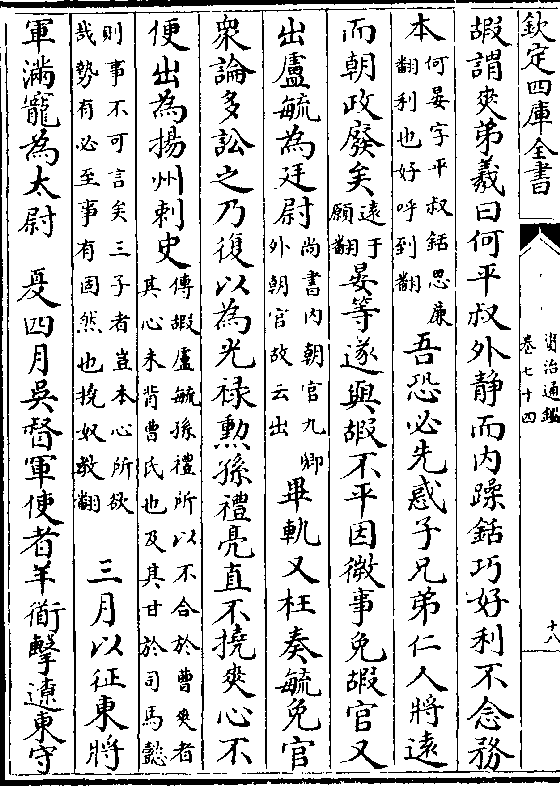 欽定四庫全書
資治通鑑
卷七十四
十八
嘏謂爽弟羲曰何平叔外静而内躁銛巧好利不念務
本何晏字平叔銛思廉
翻利也好呼到翻吾恐必先惑子兄弟仁人將遠
而朝政廢矣遠于
願翻晏等遂與嘏不平因微事免嘏官又
出盧毓為廷尉尚書内朝官九卿
外朝官故云出畢軌又枉奏毓免官
衆論多訟之乃復以為光禄勲孫禮亮直不撓爽心不
便出為揚州刺史傅嘏盧毓孫禮所以不合於曹爽者
其心未背曹氏也及其甘於司馬懿
則事不可言矣三子者豈本心所欲
哉勢有必至事有固然也撓奴教翻三月以征東將
軍滿寵為太尉 夏四月吳督軍使者羊衜擊遼東守